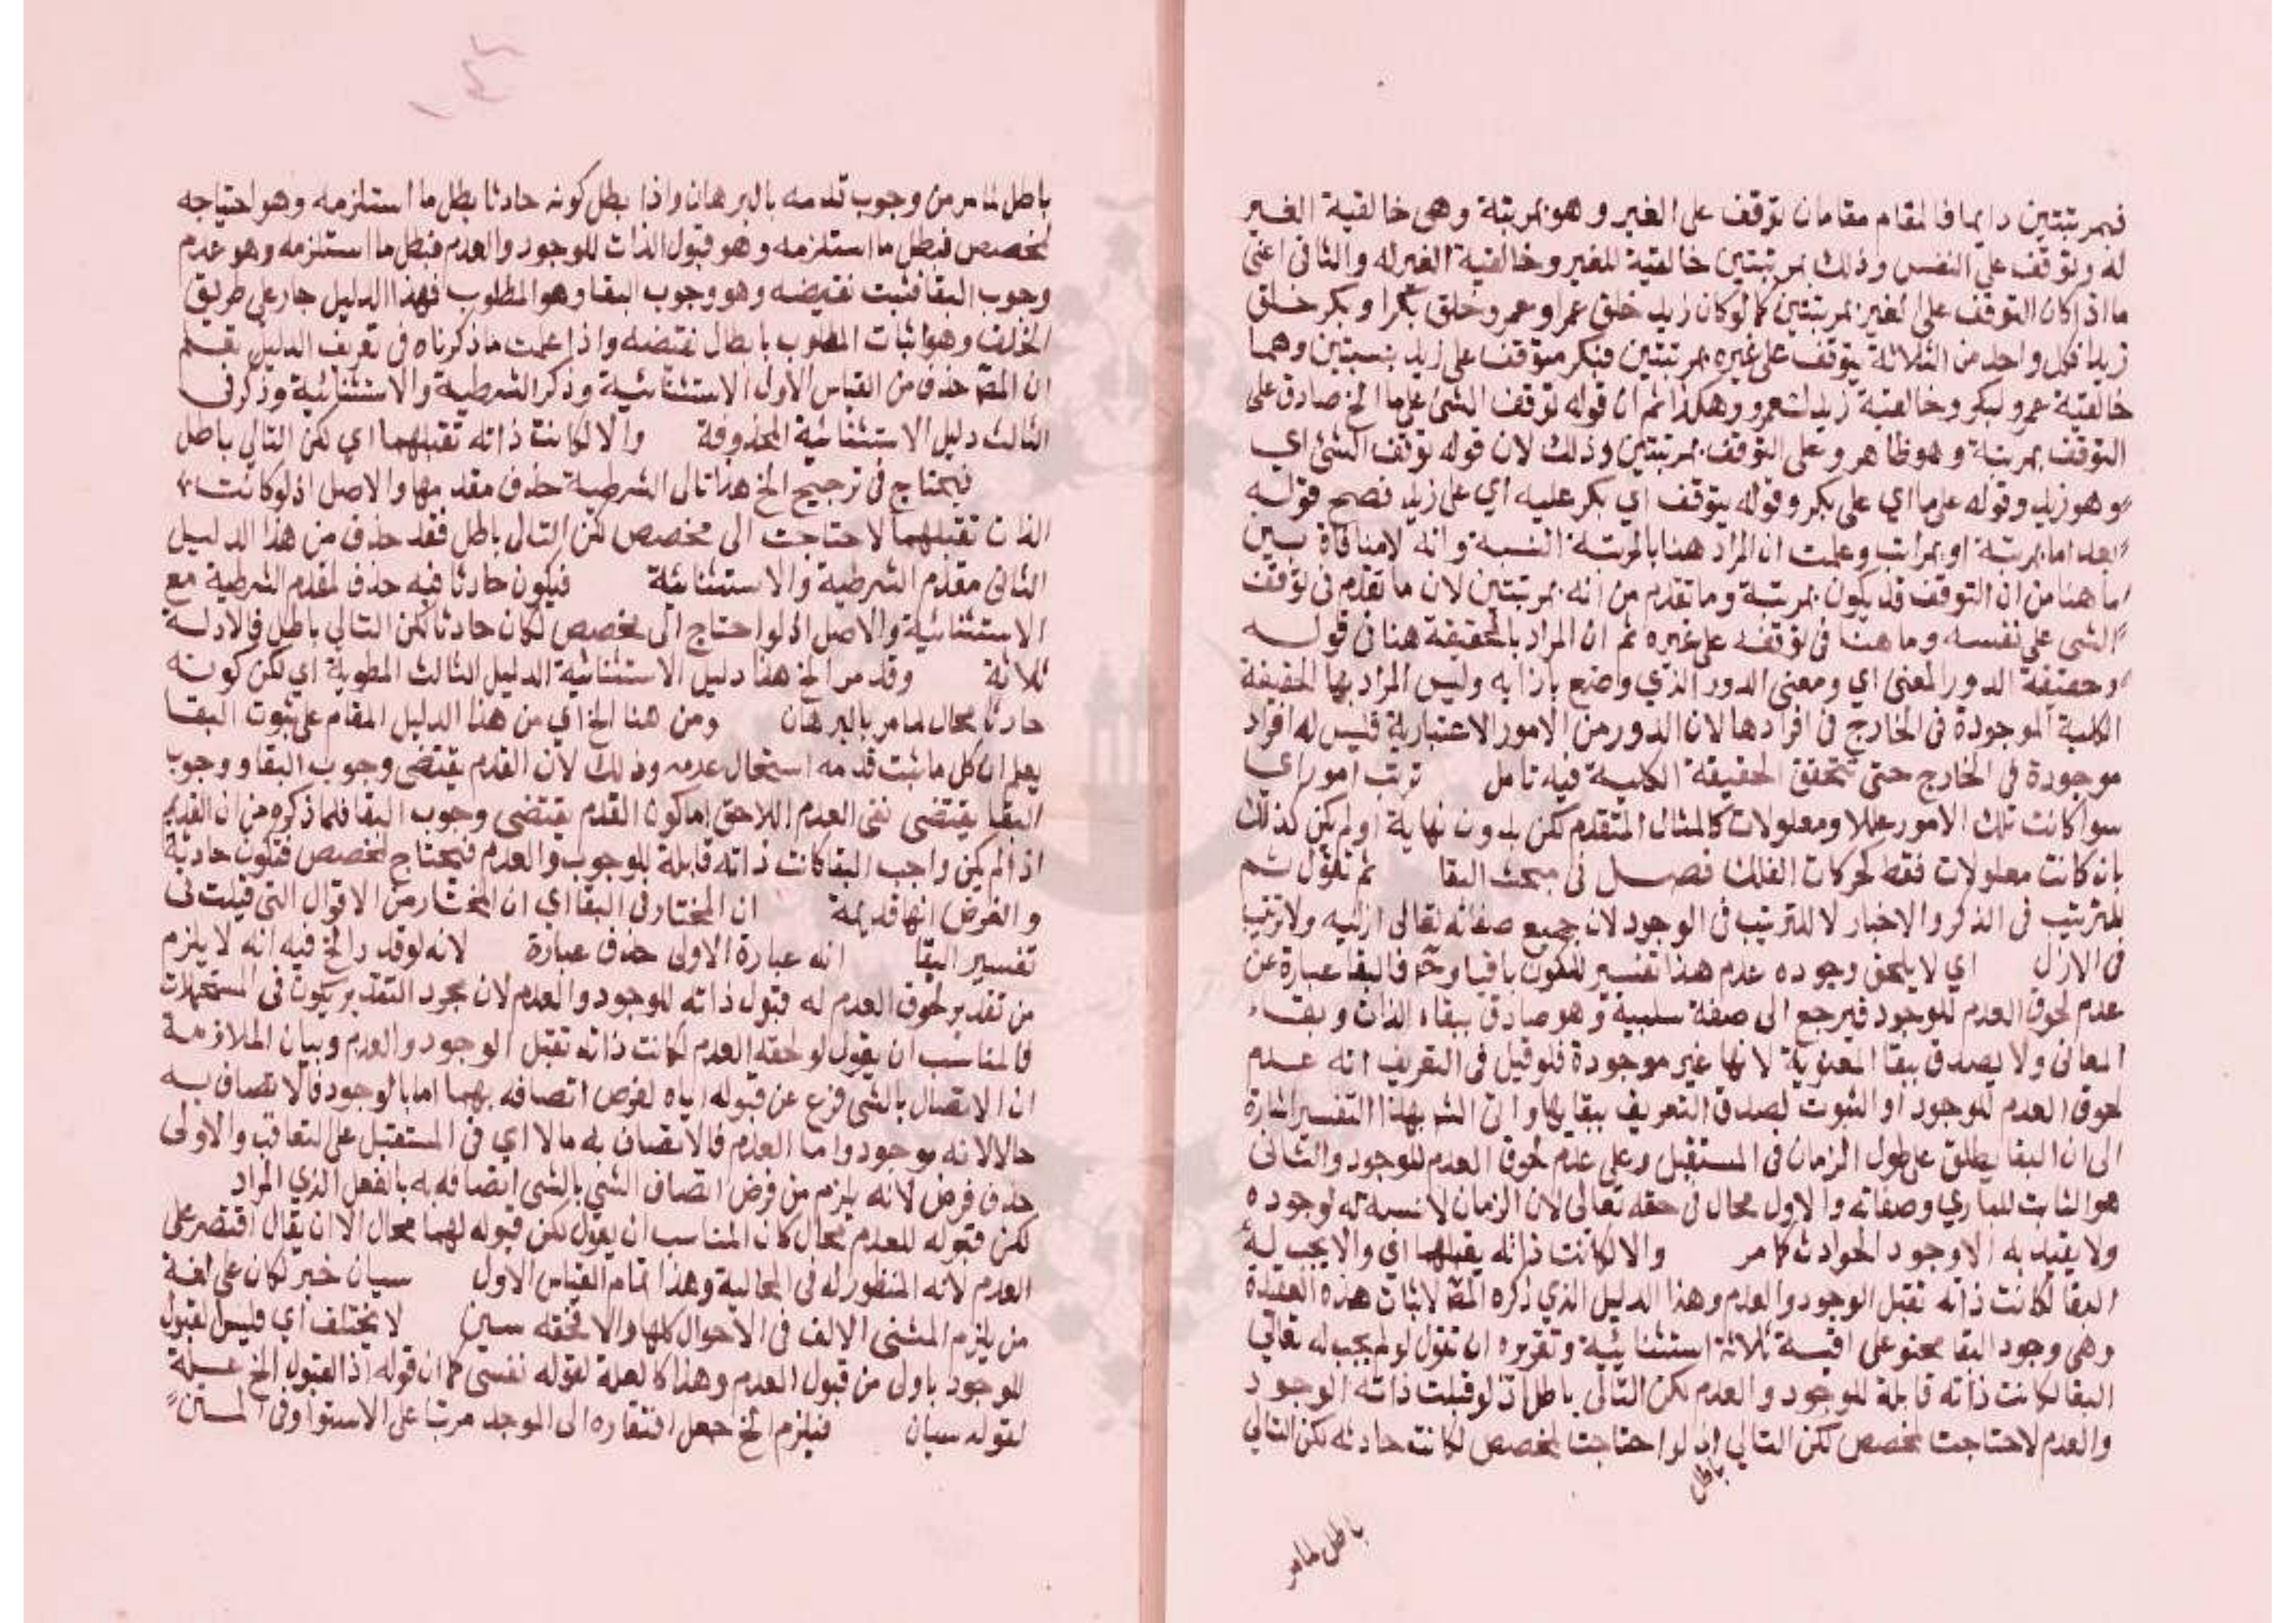 فبمرتبتين دايما فالمقام مقامان توقف على الغير وهو بمرتبة وهى خالقية الغير
له وتوقف على النفس وذلك بمرتبتين خالقية للغير وخالقية الغير له والثانى اعنى
ما اذا كان التوقف على الغير بمرتبتين كما لو كان زيد خلق عمرا وعمرو خلق بكرا وبكر خلق
زيدا فكل واحد من الثلاثة يتوقف على غيره بمرتبتين فبكر متوقف على زيد بنسبتين وهما
خالقية عمرو لبكر وخالقية زيد لعمرو وهكذا ثم ان قوله توقف الشئ على ما الخ صادق على
التوقف بمرتبة وهو ظاهر وعلى التوقف بمرتبتين وذلك لان قوله توقف الشئ اي
وهو زيد وقوله على ما اي على بكر وقوله يتوقف اي بكر عليه اي على زيد فصح قوله
بعد اما بمرتبة او بمراتب وعلمت ان المراد هنا بالمرتبة النسبة وانه لا منافاة بين
ما هنا من ان التوقف قد يكون بمرتبة وما تقدم من انه بمرتبتين لان ما تقدم فى توقف
الشى على نفسه وما هنا فى توقفه على غيره ثم ان المراد بالحقيقة هنا فى قوله
وحقيقة الدور المعنى اي ومعنى الدور الذي وضع بازايه وليس المراد بها الحقيقة
الكلية الموجودة فى الخارج فى افرادها لان الدور من الامور الاعتبارية فليس له افراد
موجودة فى الخارج حتى تتحقق الحقيقة الكلية فيه تامل ترتب امور اي
سوا كانت تلك الامور عللا ومعلولات كالمثال المتقدم لكن بدون نهاية او لم يكن كذلك
بان كانت معلولات فقط كحركات الفلك فصل فى مبحث البقا ثم تقول ثم
للترتيب فى الذكر والاخبار لا للترتيب فى الوجود لان جميع صفاته تعالى ازليه ولا ترتيب
فى الازل اي لا يلحق وجوده عدم هذا تفسير للكون باقيا وح فالبقا عبارة عن
عدم لحوق العدم للوجود فيرجع الى صفة سلبية وهو صادق ببقاء الذات وبقاء
المعانى ولا يصدق ببقا المعنوية لانها غير موجودة فلو قيل فى التعريف انه عدم
لحوق العدم للوجود او الثبوت لصدق التعريف ببقايها واتى الش بهذا التفسير اشارة
الى ان البقا يطلق على طول الزمان فى المستقبل وعلى عدم لحوق العدم للوجود والثانى
هو الثابت للباري وصفاته والاول محال فى حقه تعالى لان الزمان لا نسبة له لوجوده
ولا يقيد به الا وجود الحوادث كما مر والا لكانت ذاته يقبلها اي والا يجب له
البقا لكانت ذاته تقبل الوجود والعدم وهذا الدليل الذي ذكره المص لاثبات هذه العقيدة
وهى وجود البقا محتو على اقيسة ثلاثة استثنائية وتقريره ان تقول لو لم يجب له تعالى
البقا لكانت ذاته قابلة للوجود والعدم لكن التالى باطل اذ لو قبلت ذاته الوجود
والعدم لاحتاجت لمخصص لكن التالي اذ لو احتاجت لمخصص لكانت حادثه لكن التالي
باطل
باطل لما مر
باطل لما مر من وجوب قدمه بالبرهان واذا بطل كونه حادثا بطل ما استلزمه وهو احتياجه
لمخصص فبطل ما استلزمه وهو قبول الذات للوجود والعدم فبطل ما استلزمه وهو عدم
وجوب البقا فثبت نقيضه وهو وجوب البقا وهو المطلوب فهذا الدليل جار على طريق
الخلف وهو اثبات المطلوب بابطال نقيضه واذا علمت ما ذكرناه فى تعريف الدليل تعلم
ان المص حذف من القياس الاول الاستثنائية وذكر الشرطية والاستثنائية وذكر فى
الثالث دليل الاستثنائية المحذوفة والا لكانت ذاته تقبلهما اي لكن التالي باطل
فيحتاج فى ترجيح الخ هذا تالى الشرطية حذف مقدمها والاصل اذ لو كانت
الذات تقبلهما لاحتاجت الى مخصص لكن التالى باطل فقد حذف من هذا الدليل
الثانى مقدم الشرطية والاستثنائية فيكون حادثا فيه حذف لمقدم الشرطية مع
الاستثنائية والاصل اذ لو احتاج الى مخصص لكان حادثا لكن التالي باطل فالادلة
ثلاثة وقد مر الخ هذا دليل الاستثنائية الدليل الثالث المطوية اي لكن كونه
حادثا محال لما مر بالبرهان ومن هنا الخ اي من هذا الدليل المقام على ثبوت البقا
يعلم ان كل ما ثبت قدمه استحال عدمه وذلك لان القدم يقتضى وجوب البقا ووجوب
البقا يقتضى نفى العدم اللاحق اما كون القدم يقتضى وجوب البقا فلما ذكره من ان القديم
اذا لم يكن واجب البقا كانت ذاته قابلة للوجوب والعدم فيحتاج لمخصص فتكون حادثة
والفرض انها قديمة ان المختار فى البقا اي ان المختار من الاقوال التى قيلت فى
تفسير البقا انه عبارة الاولى حذف عبارة لانه لو قدر الخ فيه انه لا يلزم
من تقدير لحوق العدم له قبول ذاته للوجود والعدم لان مجرد التقدير يكون فى المستحيلات
فالمناسب ان يقول لو لحقه العدم لكانت ذاته تقبل الوجود والعدم وبيان الملازمة
ان الاتصال بالشى فرع عن قبوله اياه لفرض اتصافه بهما اما بالوجود فالاتصاف به
حالا لانه موجود واما العدم فالاتصاف به مالا اي فى المستقبل على التعاقب والاولى
حذف فرض لانه يلزم من فرض اتصاف الشئ بالشى اتصافه به بالفعل الذي المراد
لكن قبوله للعدم محال كان المناسب ان يقول لكن قبوله لهما محال الا ان يقال اقتصر على
العدم لانه المنظور له فى المحالية وهذا تمام القياس الاول سيان خبر لكان على لغة
من يلزم المثنى الالف فى الاحوال كلها والا فحقه سيين لا يختلف اي فليس لقبول
للوجود باولى من قبول العدم وهذا كالعلة لقوله نفسى كما ان قوله اذ القبول الخ علة
لقوله سيان فيلزم الخ جعل افتقاره الى الموجد مرتبا على الاستوا وفى